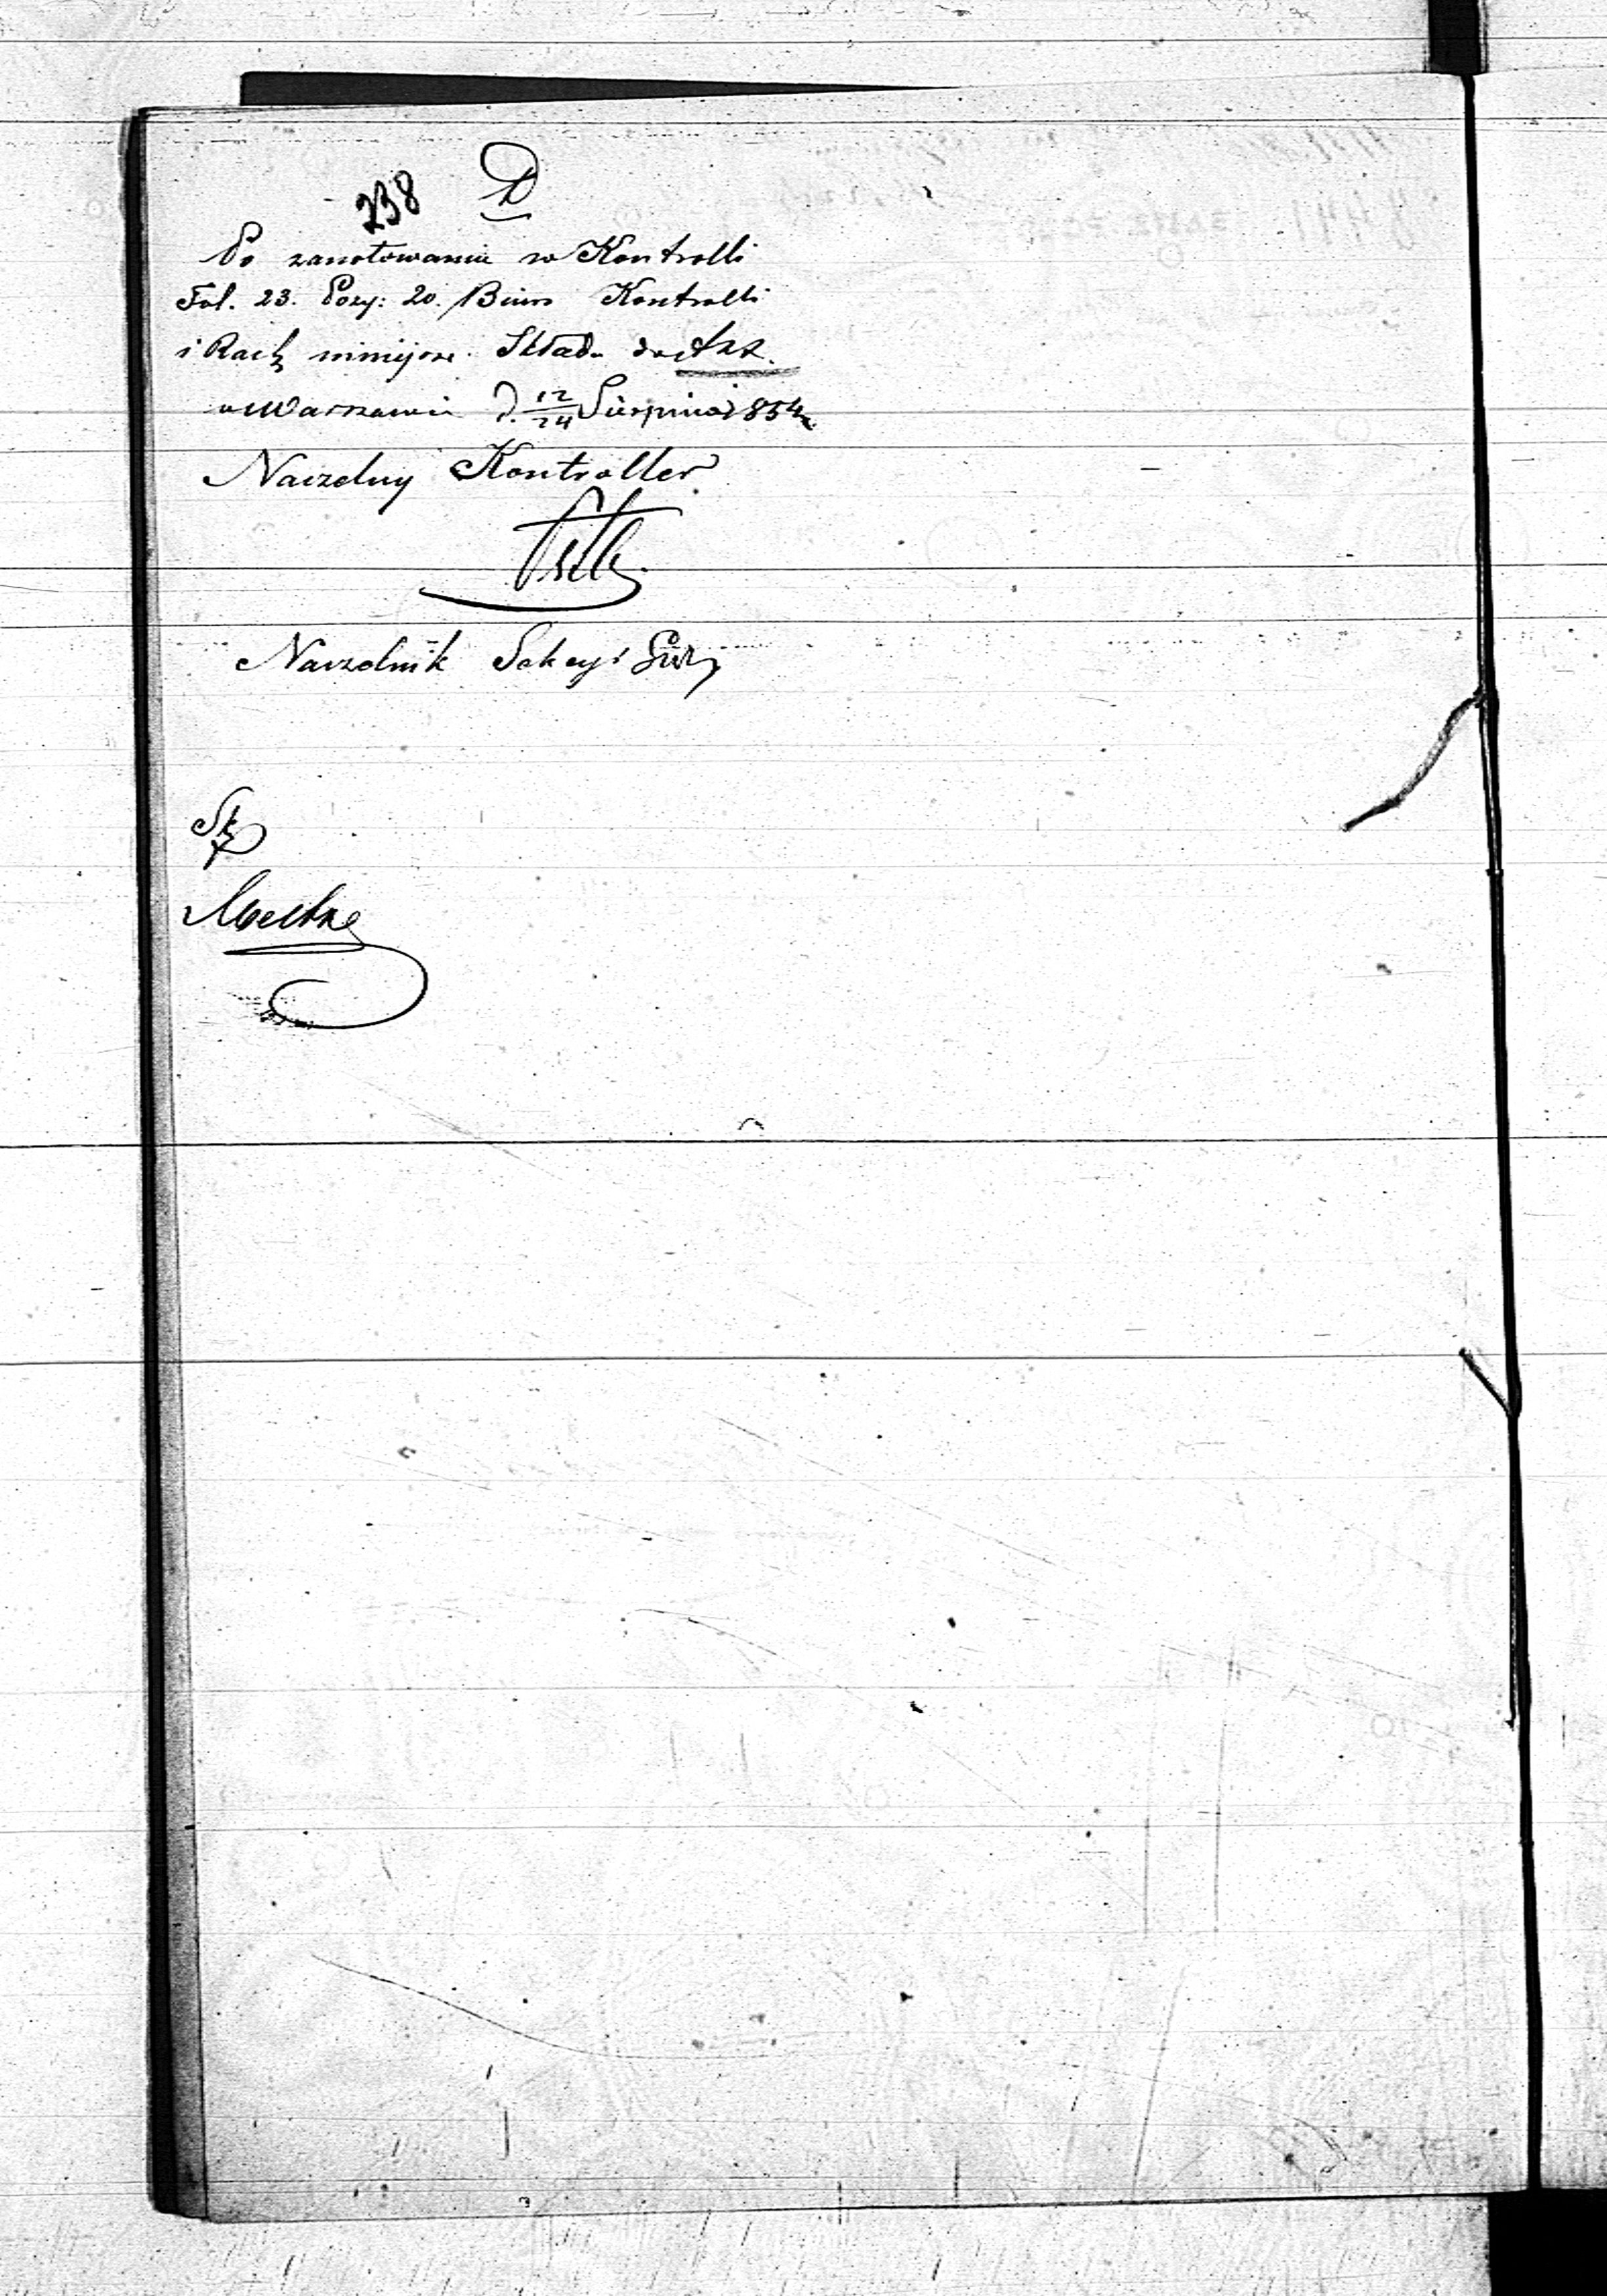 238 D
Po zanotowaniu w Kontrolli
Fol. 23. Pozy: 20. Biuro Kontrolli
i Rach niniejsze Składa do Akt.
w Warszawie d. 12/24 Sierpnia 1854 r.
Naczelny Kontroller
Naczelnik Sekcyi